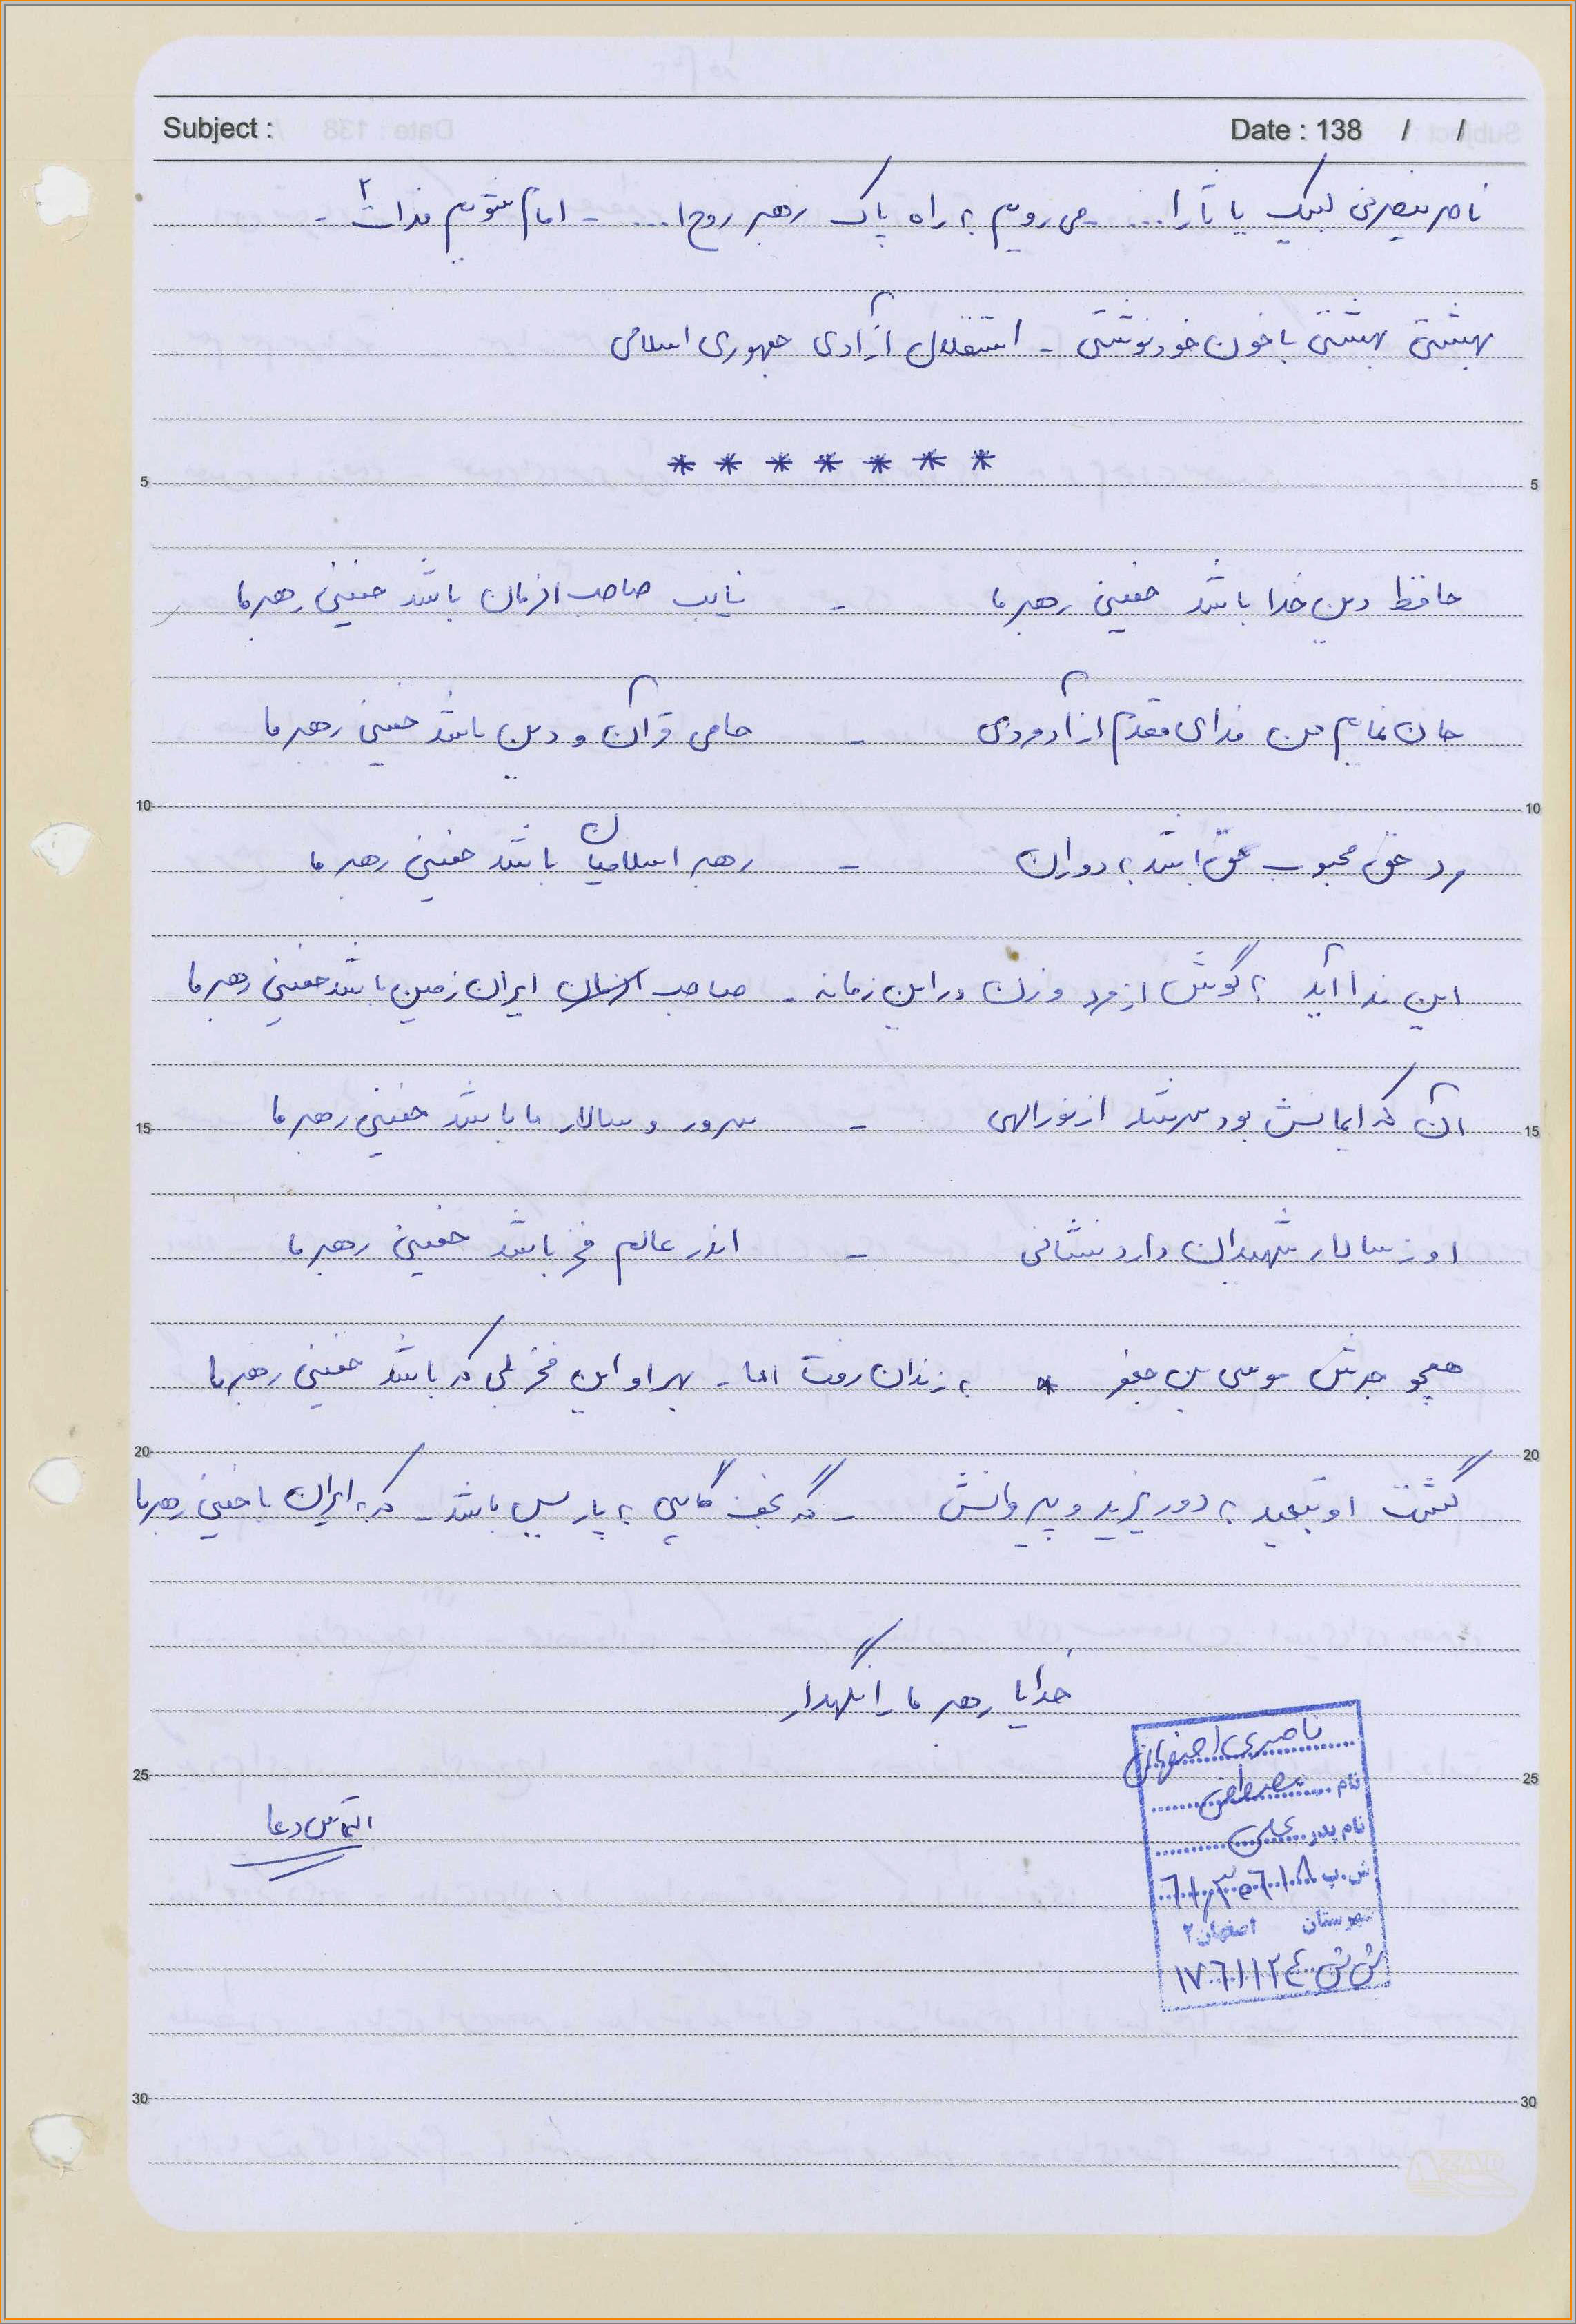 Subject :
Date : 138 / /
ناصر ینصرنی لبیک یا ثارا... - می رویم به راه پاک رهبر روح ا... - امام بشویم فدات ۲ -
بهشتی بهشتی با خون خود نوشتی - استقلال آزادی جمهوری اسلامی
* * * * * * *
5 5
حافظ دین خدا باشد خمینی رهبر ما - نایب صاحب الزمان باشد خمینی رهبر ما
جان تمام من فدای مقدم آزاد مردی - حامی قرآن و دین باشد خمینی رهبر ما
10 10
مرد حق محبوب حق باشد به دوران - رهبر اسلامیان باشد خمینی رهبر ما
این ندا آید به گوش از مرد و زن در این زمانه - صاحب ایران زمین باشد خمینی رهبر ما
آن که ایمانش بود سرشار از نور الهی - سرور و سالار ما باشد خمینی رهبر ما
15 15
او ز سالار شهیدان دارد نشانی - اندر عالم فخر باشد خمینی رهبر ما
همچو جدش موسی بن جعفر * به زندان رفت اما - بهر او این فخر بلی که باشد خمینی رهبر ما
20 20
گشت او تبعید به دور یزید و پیروانش - گه نجف گاهی به پاریس باشد - که به ایران با خمینی رهبر ما
خدایا رهبر ما را نگهدار
ناصری اصفهانی
25 25
نام مصطفی
التماس دعا
نام پدر علی
ش.پ
شهرستان اصفهان ۲
ش ش ۱۷۶۱۱۲۴
30 30